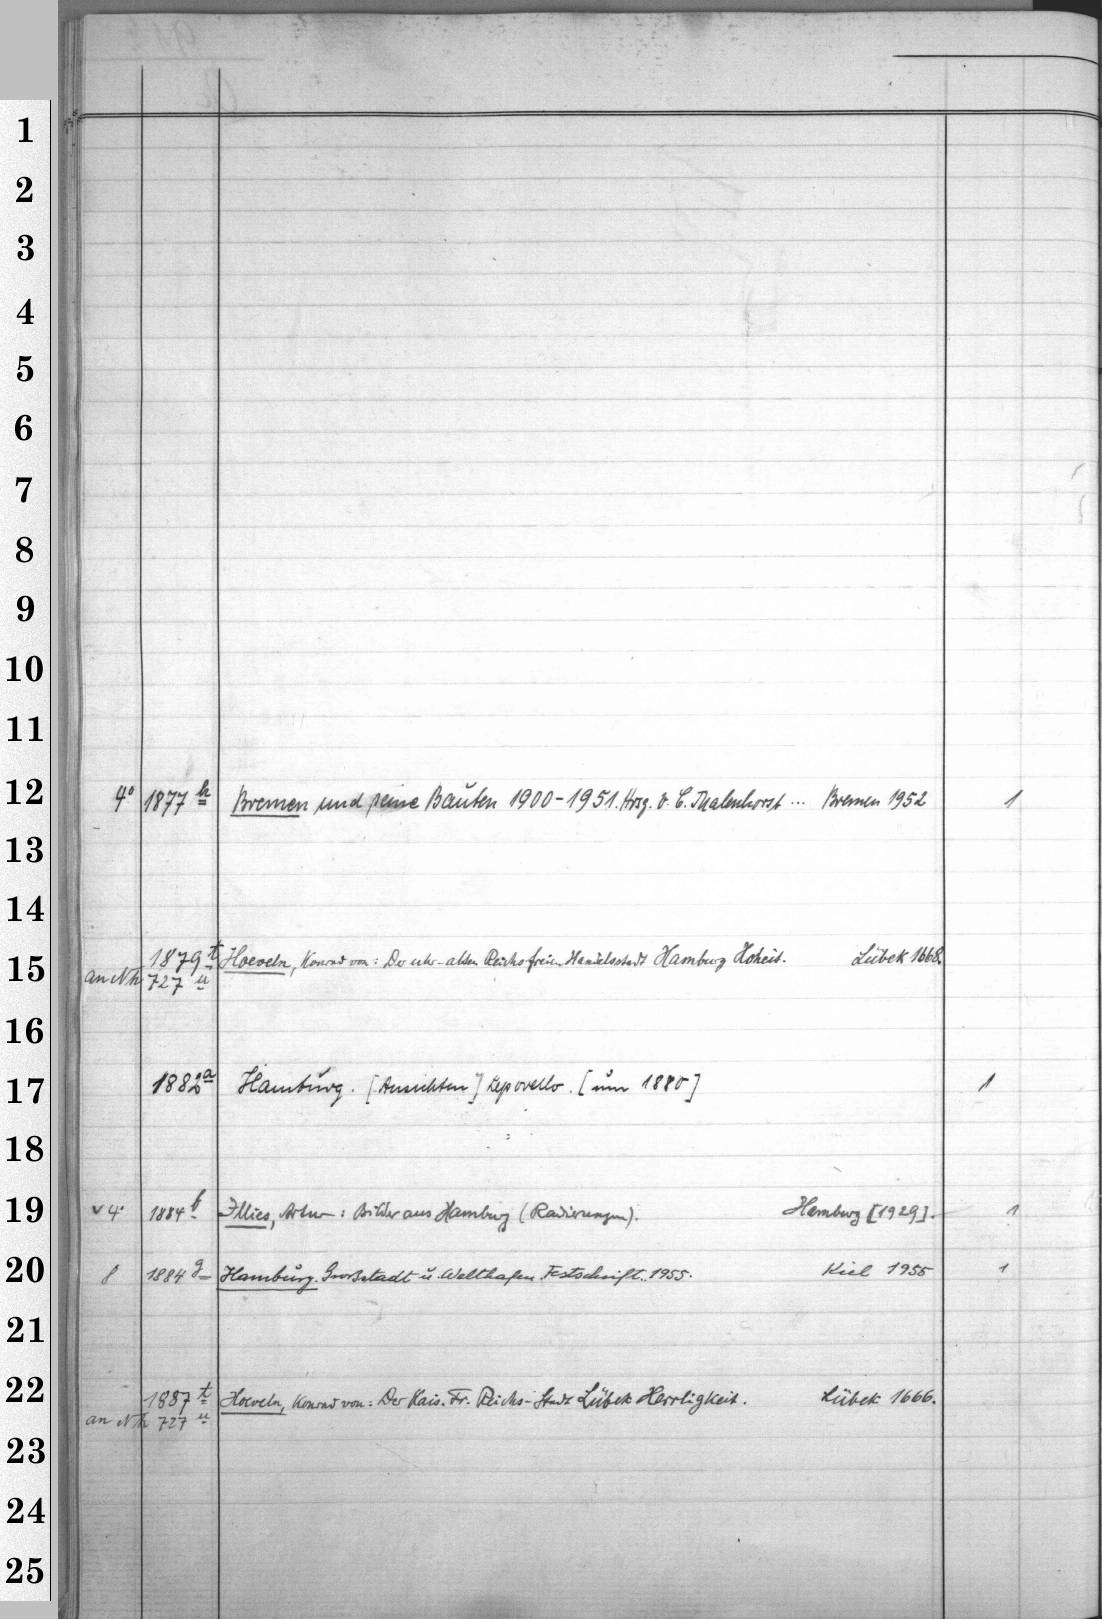 1
2
3
4
5
6
7
8
9
10
11
12 4° 1877 h Bremen und seine Bauten 1900-1951. Hrsg. v. C. Thalenhorst ... Bremen 1952 1
13
14
1879 t Hoeveln, Konrad von: Der uhr-alten Reichsfreien Handelsstadt Hamburg Hoheit. Lübek 1668.
15 an Nh 727 u
16
17 1882 a Hamburg. [Ansichten] Leporello. [um 1880] 1
18
19 v 4° 1884 f Illies, Artur: Bilder aus Hamburg (Radierungen). Hamburg [1929]. 1
20 8 1884 g Hamburg. Großstadt u. Welthafen. Festschrift. 1955. Kiel 1955 1
21
22 1887 t Hoeveln, Konrad von: Der Kais. Fr. Reichs-Stadt Lübek Herrligkeit. Lübek 1666.
an Nh 727 u
23
24
25